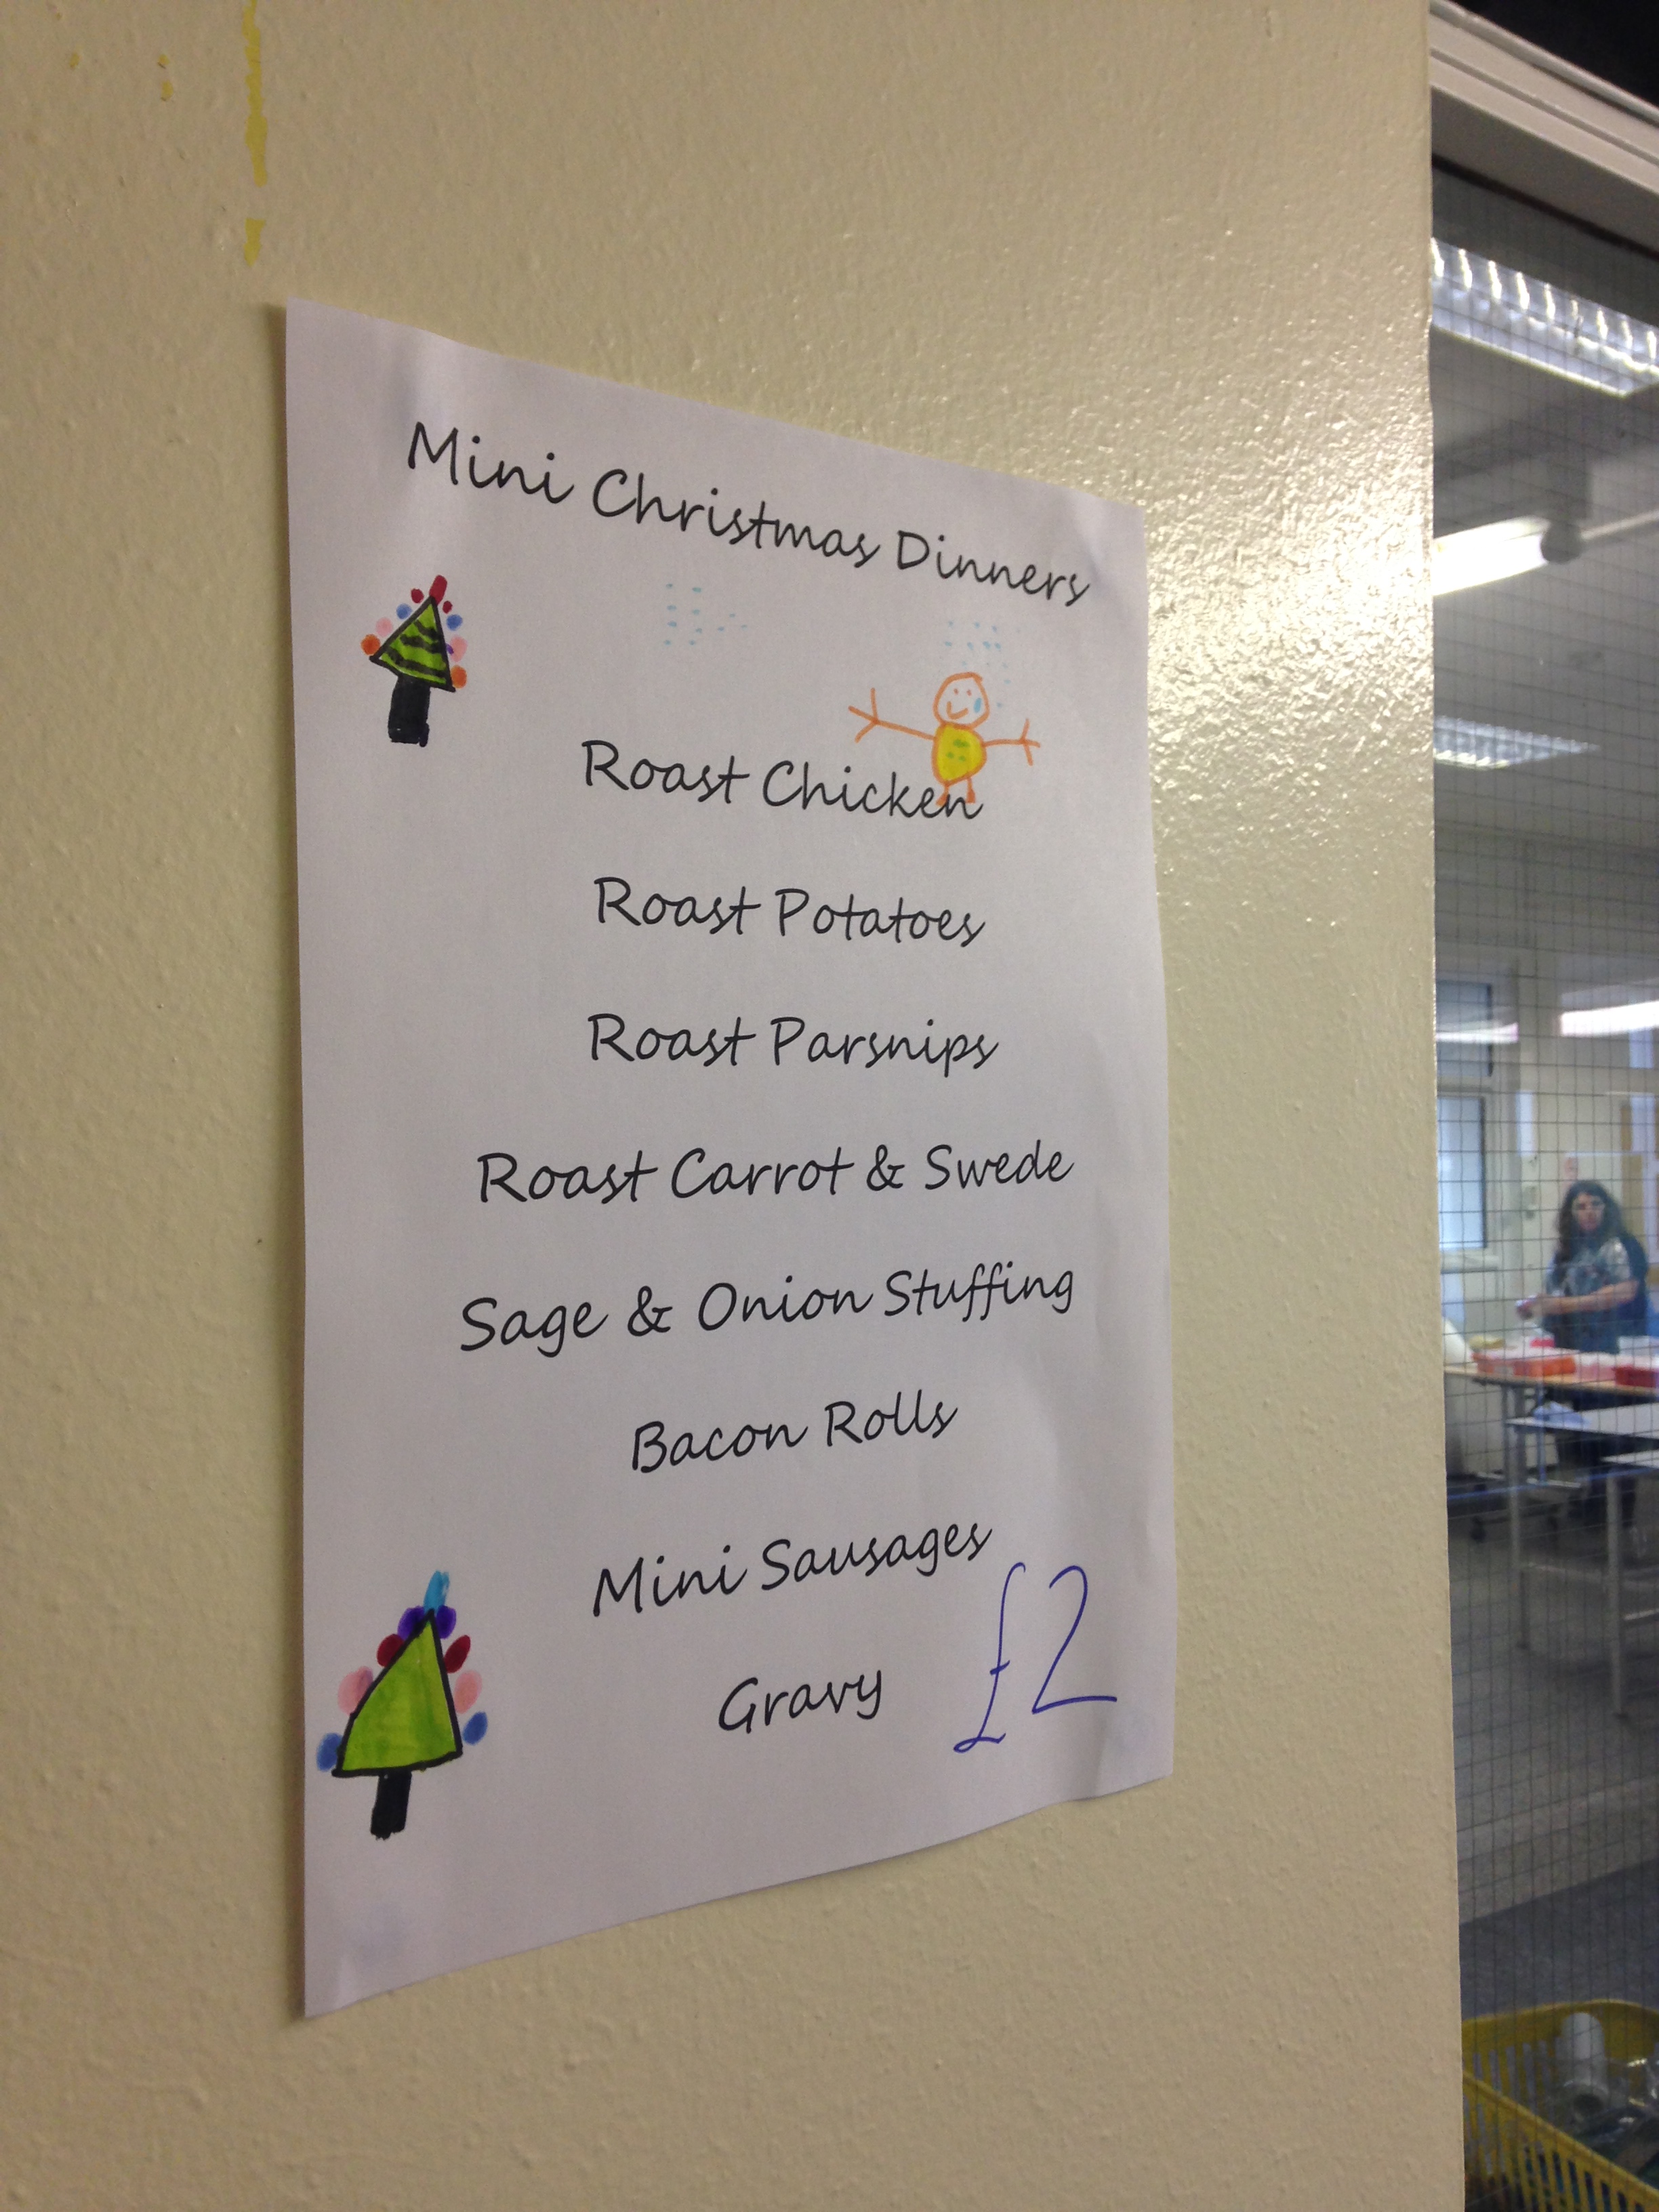 Mini Christmas Dinners
Roast Chicken
Roast Potatoes
Roast Parsnips
Roast Carrot & Swede
Sage & Onion Stuffing
Bacon Rolls
Mini Sausages
Gravy £2